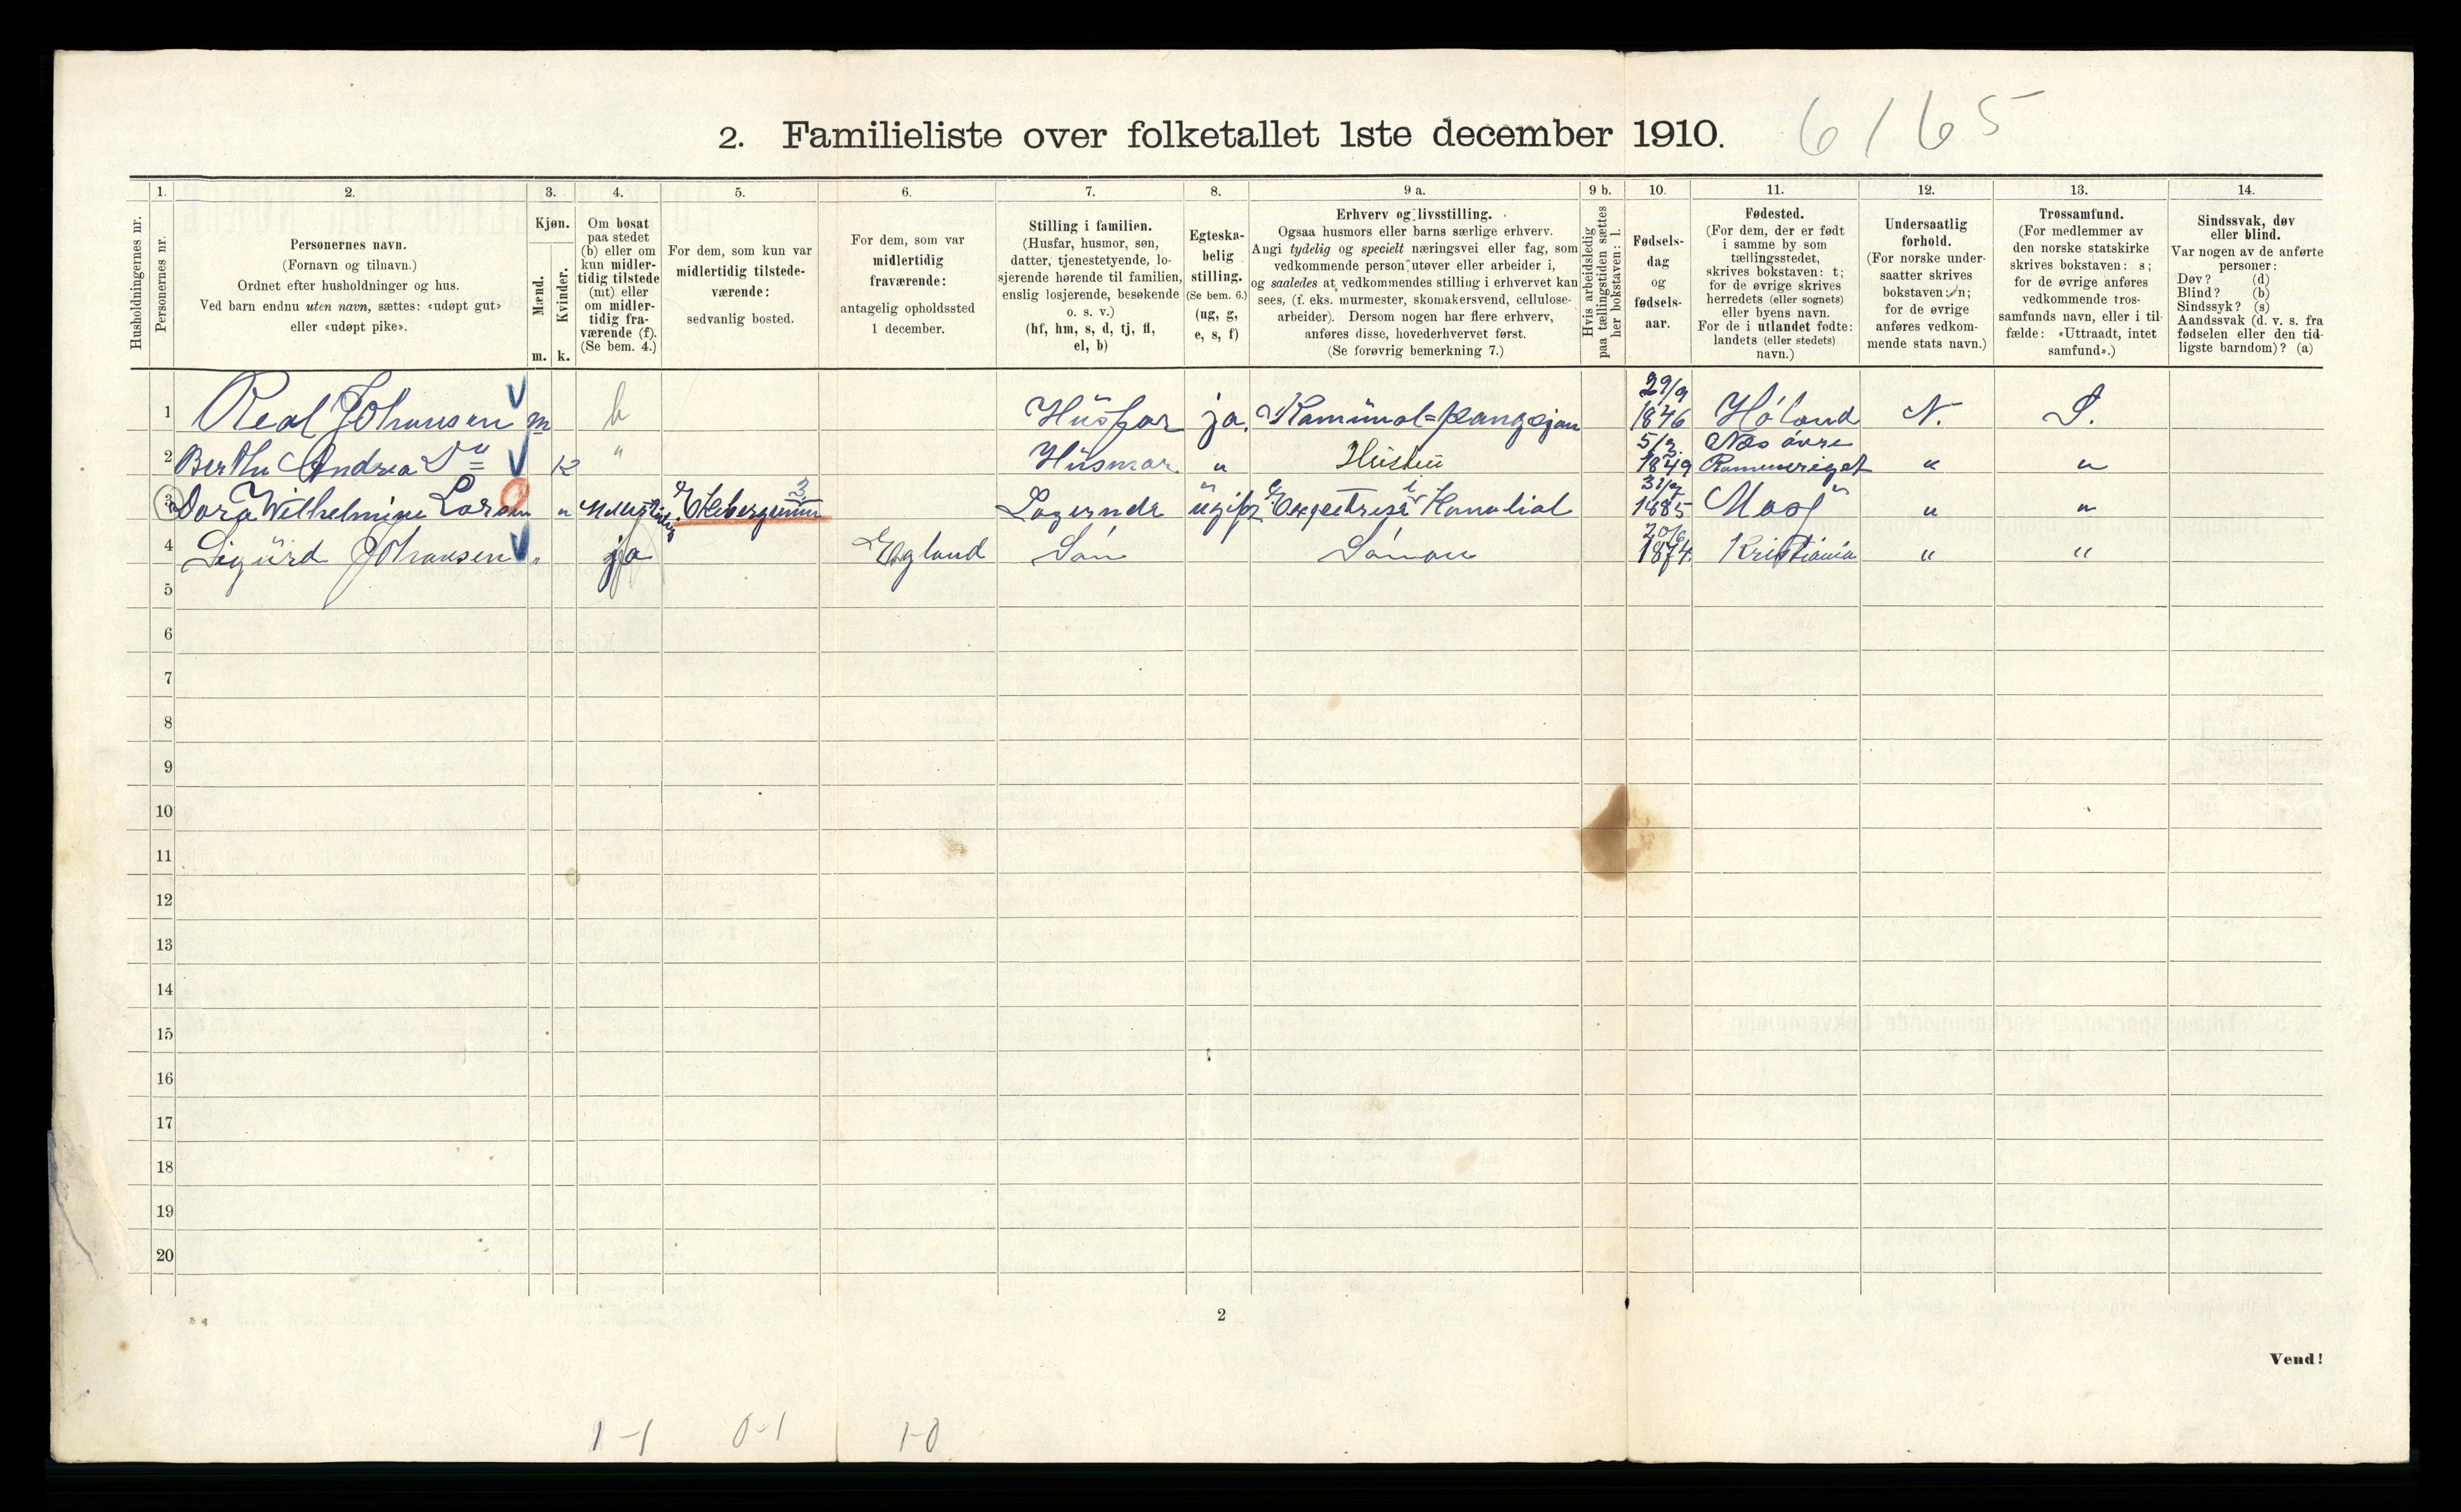 2. Familieliste over folketallet 1ste december 1910. 6165
1. 2. 3. 4. 5. 6. 7. 8. 9 a. 9 b. 10. 11. 12. 13. 14.
Husholdningernes nr.
Personernes nr.
Personernes navn.
(Fornavn og tilnavn.)
Ordnet efter husholdninger og hus.
Ved barn endnu uten navn, sættes: «udøpt gut»
eller «udøpt pike».
Kjøn.
Mænd.
Kvinder.
m. k.
Om bosat
paa stedet
(b) eller om
kun midler-
tidig tilstede
(mt) eller
om midler-
tidig fra-
værende (f).
(Se bem. 4.)
For dem, som kun var
midlertidig tilstede-
værende:
sedvanlig bosted.
For dem, som var
midlertidig
fraværende:
antagelig opholdssted
1 december.
Stilling i familien.
(Husfar, husmor, søn,
datter, tjenestetyende, lo-
sjerende hørende til familien,
enslig losjerende, besøkende
o. s. v.)
(hf, hm, s, d, tj, fl,
el, b)
Egteska-
belig
stilling.
(Se bem. 6.)
(ug, g,
e, s, f)
Erhverv og livsstilling.
Ogsaa husmors eller barns særlige erhverv.
Angi tydelig og specielt næringsvei eller fag, som
vedkommende person utøver eller arbeider i,
og saaledes at vedkommendes stilling i erhvervet kan
sees, (f. eks. murmester, skomakersvend, cellulose-
arbeider). Dersom nogen har flere erhverv,
anføres disse, hovederhvervet først.
(Se forøvrig bemerkning 7.)
Hvis arbeidsledig
paa tællingstiden sættes
her bokstaven: l.
Fødsels-
dag
og
fødsels-
aar.
Fødested.
(For dem, der er født
i samme by som
tællingsstedet,
skrives bokstaven: t;
for de øvrige skrives
herredets (eller sognets)
eller byens navn.
For de i utlandet fødte:
landets (eller stedets)
navn.)
Undersaatlig
forhold.
(For norske under-
saatter skrives
bokstaven: n;
for de øvrige
anføres vedkom-
mende stats navn.)
Trossamfund.
(For medlemmer av
den norske statskirke
skrives bokstaven: s;
for de øvrige anføres
vedkommende tros-
samfunds navn, eller i til-
fælde: «Uttraadt, intet
samfund».)
Sindssvak, døv
eller blind.
Var nogen av de anførte
personer:
Døv? (d)
Blind? (b)
Sindssyk? (s)
Aandssvak (d. v. s. fra
fødselen eller den tid-
ligste barndom)? (a)
1 Real Johansen m b Husfar ja. 29/9 1846 Höland N. S.
2 Bertha Andrea Do k " Husmor " Hustru 5/3 1849 Næs övre Romeriget " "
3 Dora Wilhelmine Larsen " Logerende ugift 31/7 1885 Mos " "
4 Sigurd Johansen " ja England Sön Sömand 20/6 1874 Kristiania " "
5
6
7
8
9
10
11
12
13
14
15
16
17
18
19
20
2
Vend!
1-1 0-1 1-0